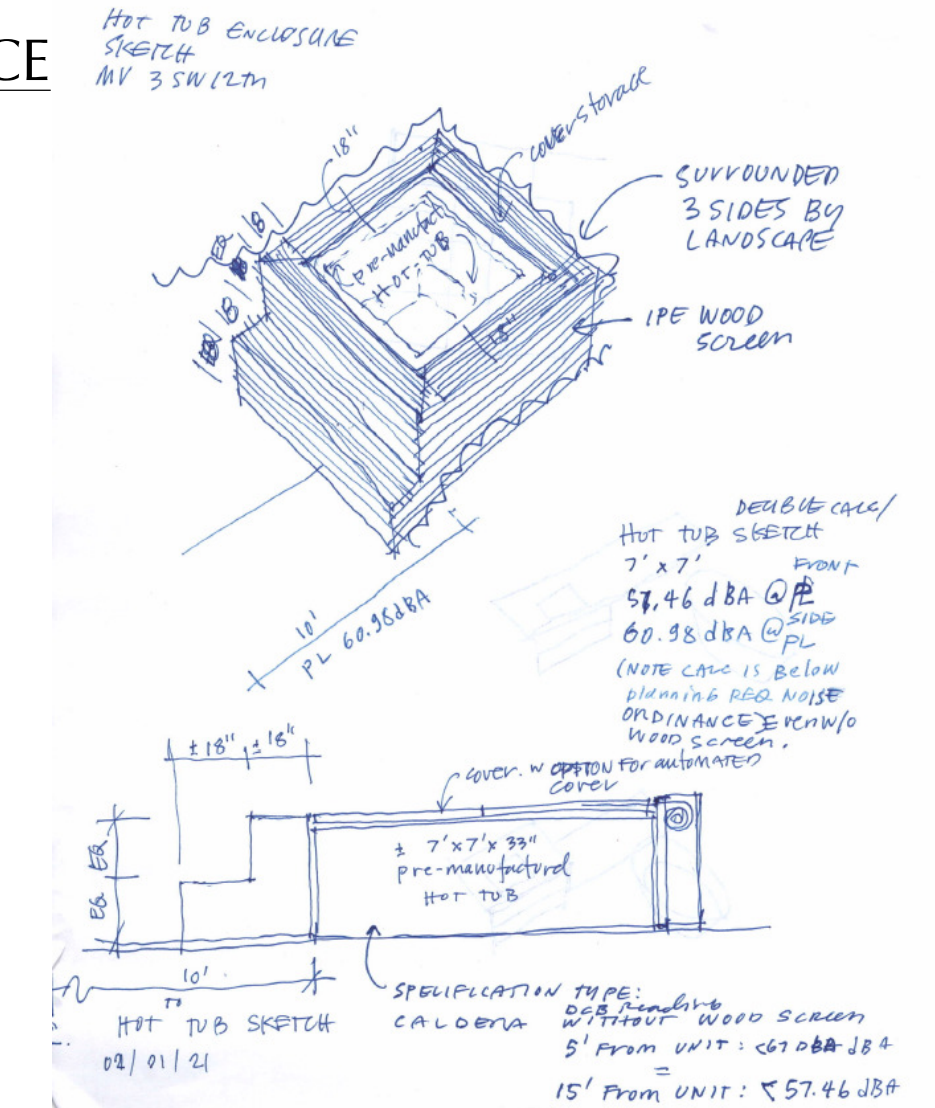 CE
HOT TUB ENCLOSURE
SKETCH
MV 3 SW 12th
18"
cover storage
SURROUNDED
3 SIDES BY
LANDSCAPE
EQ 18
18
pre-manufact
HOT-TUB
18"
IPE WOOD
screen
10'
PL 60.98dBA
DECIBLE CALC/
HOT TUB SKETCH
7' x 7'
FRONT
57.46 dBA @ PL
60.98 dBA @ SIDE
PL
(NOTE CALC IS Below
planning REQ NOISE
ORDINANCE) Even w/o
WOOD screen.
± 18" ± 18"
cover. w OPTION For automated
cover
EQ
EQ
± 7'x7'x 33"
pre-manufactured
HOT TUB
10'
TO
HOT TUB SKETCH
02/01/21
SPECIFICATION TYPE:
CALDERA
DCB Reading
WITHOUT WOOD SCREEN
5' From UNIT: <67 dBA
=
15' From UNIT: < 57.46 dBA